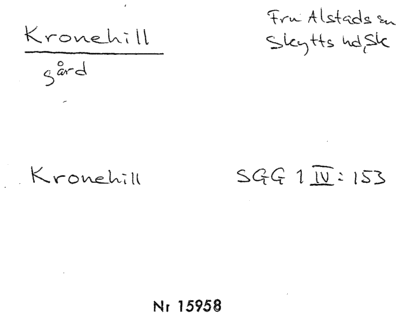 Kronehill
gård
Fru Alstads sn
Skytts hd, Sk
Kronehill
SGG 1 IV: 153
Nr 15958